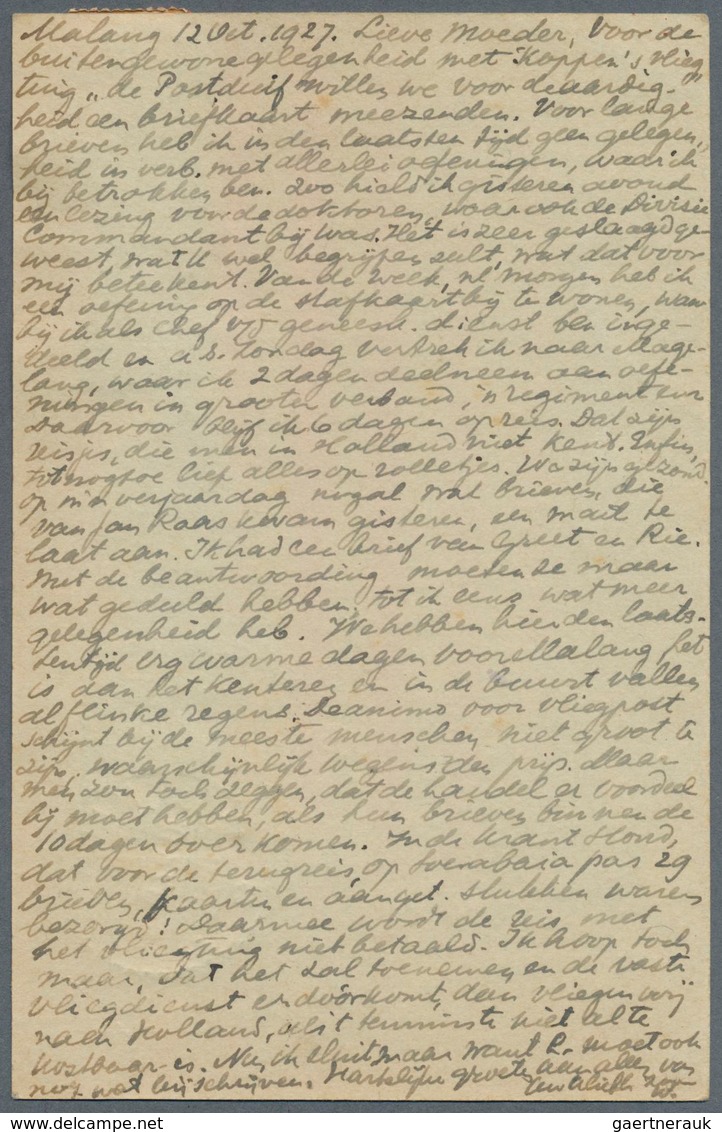 Malang 12 Oct. 1927. Lieve Moeder, Voor de
buitengewone gelegenheid met Koppen's vlieg
tuig "de Postduif" willen we voor de aardig-
heid een briefkaart meezenden. Voor lange
brieven heb ik in den laatsten tijd geen gelegen-
heid in verb. met allerlei oefeningen, waar ik
bij betrokken ben. Zoo hield ik gisteren avond
een lezing voor de doktoren, waar ook de Divisie
Commandant bij was. Het is zeer geslaagd ge-
weest, wat U wel begrijpen zult, wat dat voor
mij beteekent. Van de week, nl. morgen heb ik
een oefening op de stafkaart bij te wonen, waar
bij ik als chef v/d geneesk. dienst ben inge-
deeld en a.s. Zondag vertrek ik naar Mage-
lang, waar ik 2 dagen deelneem aan oefe-
ningen in grooter verband, 'n regiment
Daarvoor blijf ik 6 dagen op reis. Dat zijn
reisjes, die men in Holland niet kent. Enfin,
tot nog toe liep alles op rolletjes. We zijn gezond.
op m'n verjaardag nogal wat brieven, die
van Jan Raas kwam gisteren, een mail te
laat aan. Ik had een brief van Greet en Rie.
Met de beantwoording moeten ze maar
wat geduld hebben, tot ik eens wat meer
gelegenheid heb. We hebben hier den laats-
ten tijd erg warme dagen voor Malang het
is aan het kenteren en in de buurt vallen
al flinke regens. De animo voor vliegpost
schijnt bij de meeste menschen niet groot te
zijn, waarschijnlijk wegens den prijs. Maar
men zou toch zeggen, dat de handel er voordeel
bij moet hebben, als hun brieven binnen de
10 dagen overkomen. In de krant stond,
dat voor de terugreis op Soerabaia pas 29
brieven, kaarten en aanget. stukken waren
bezorgd! Daarmee wordt de reis met
het vliegtuig niet betaald. Ik hoop toch
maar, dat het zal toenemen en de vaste
vliegdienst er dóórkomt, dan vliegen wij
naar Holland, als 't tenminste niet al te
kostbaar is. Nu, ik sluit maar want R. moet ook
nog wat bijschrijven. Hartelijke groeten aan allen van
Uw liefh. zoon
gaertnerauk